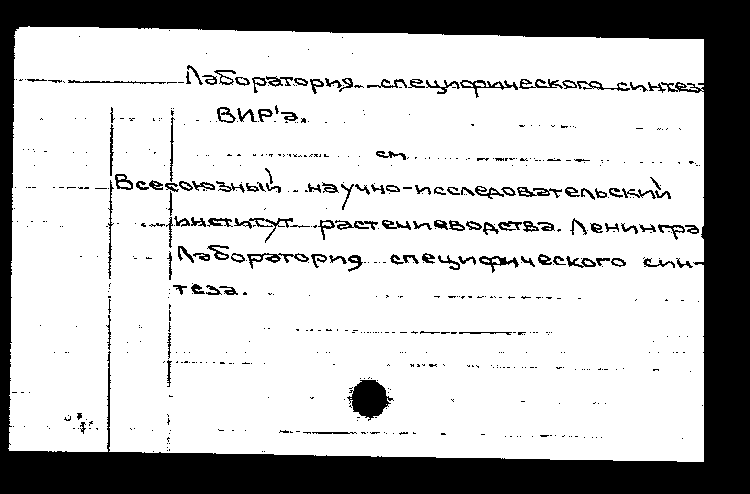 Лаборатория специфического синтеза
ВИР'а.
см
Всесоюзный научно-исследовательский
институт растениеводства. Ленинград
Лаборатория специфического син-
теза.